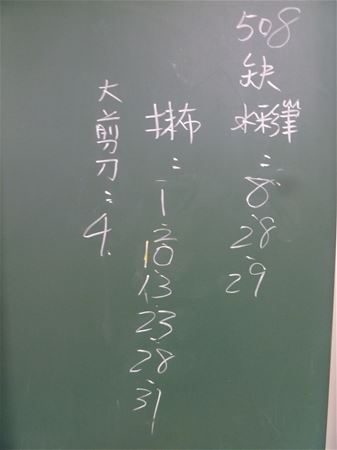 508
缺
水彩筆
:
8.
28.
29
抹布
:
1.
2.
10.
13.
23.
28.
31
大剪刀:4.